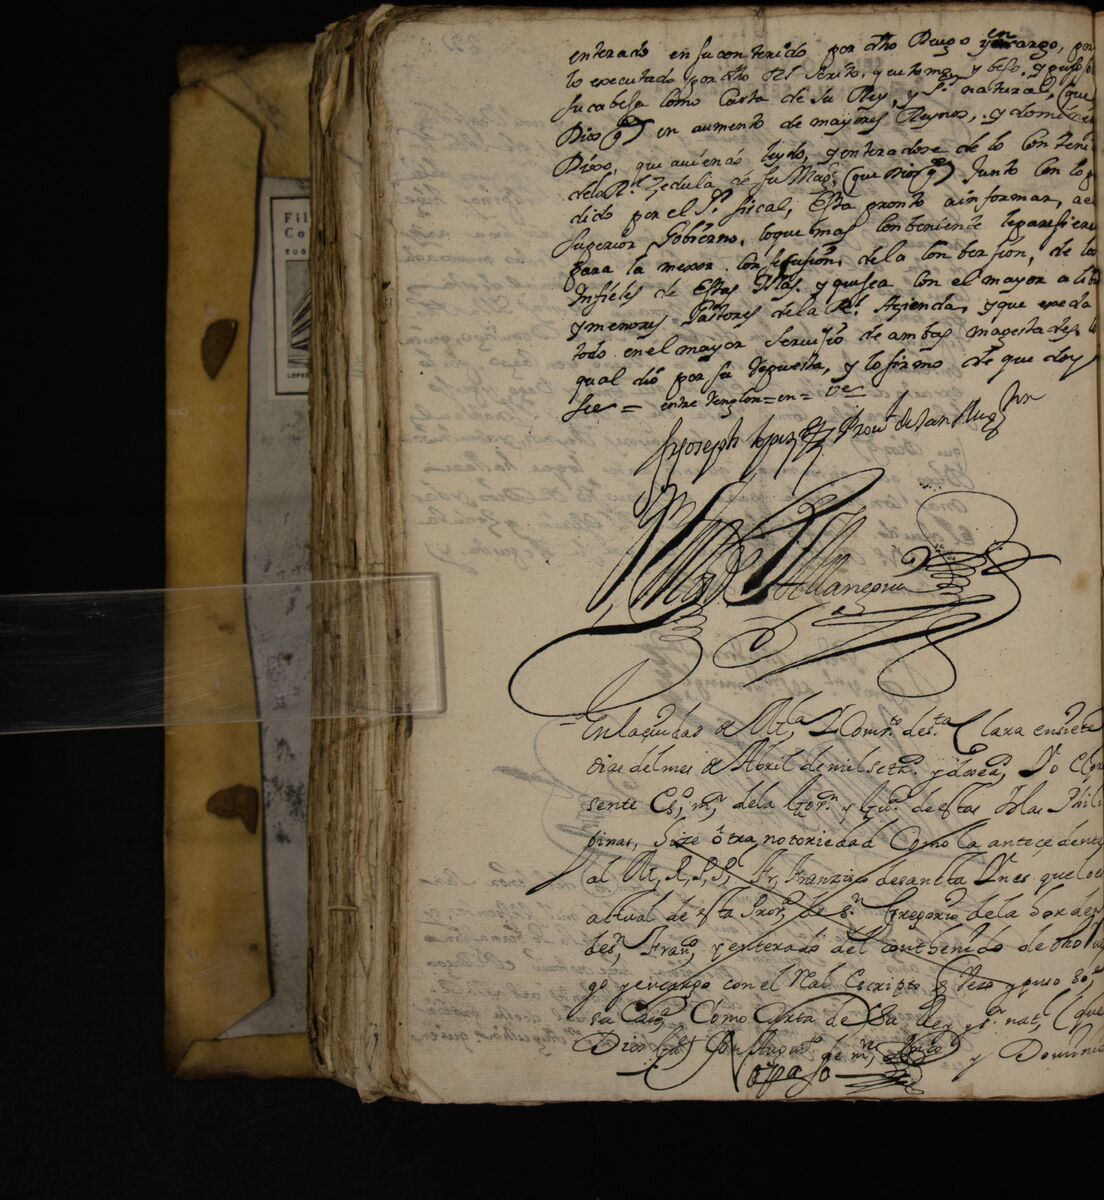 enterado en su contenido por dho Ruego y encargo, por
lo executado por dho Rl. Scrito, que tomo, y beso, y puso so
su cabesa como Carta de su Rey, y Sr. natural, (que
Dios ge) en aumento de mayores Reynos, y domini
Dixo, que auiendo leydo, y enteradose de lo conteni
de la Rl. Zedula de su Magd. (que Dios ge) Junto con lo p
dido por el Sr. fiscal, esta pronto ainformar, a el
Superior Gobierno, loque mas conbeniente le paresiere
para la mexor consecusion, de la conbersion, de los
Infieles de Estas Yslas. y que sea con el mayor alibio
y menores Gastores de la Rl. Azienda, y que exeda
todo en el mayor Seruisio de ambas magestades, lo
qual dio por su Repuesta, y lo firmo de que doy
fee = entre renglon = en = Ve
fr Joseph Lopez Prou.l de San Aug.n
Villanueua
En la çiudad de Mla, Y Comto. de Sta. Clara en siete
dias del mes de Abril de mil setos. y dose a, Yo el pre
sente Esno. mr. de la Gouern. y Gua. de estas Yslas Phili
pinas, hize otra notoriedad Como la anteçedente
al M, R, P, Pr, fr, Franzisco de santa Ynes que lo es
actual de esta Prov.a de Sn. Gregorio de la horden
de Sn. Franco, y enterado del conthenido de dho Rue
go y encargo con el Real Escripto q Veso y puso sore
su Caua. Como Carta de Su Rey y Sr. nat, (que
Dios Gde) Con Augmto. de ms, Reinos y Domini
opaso